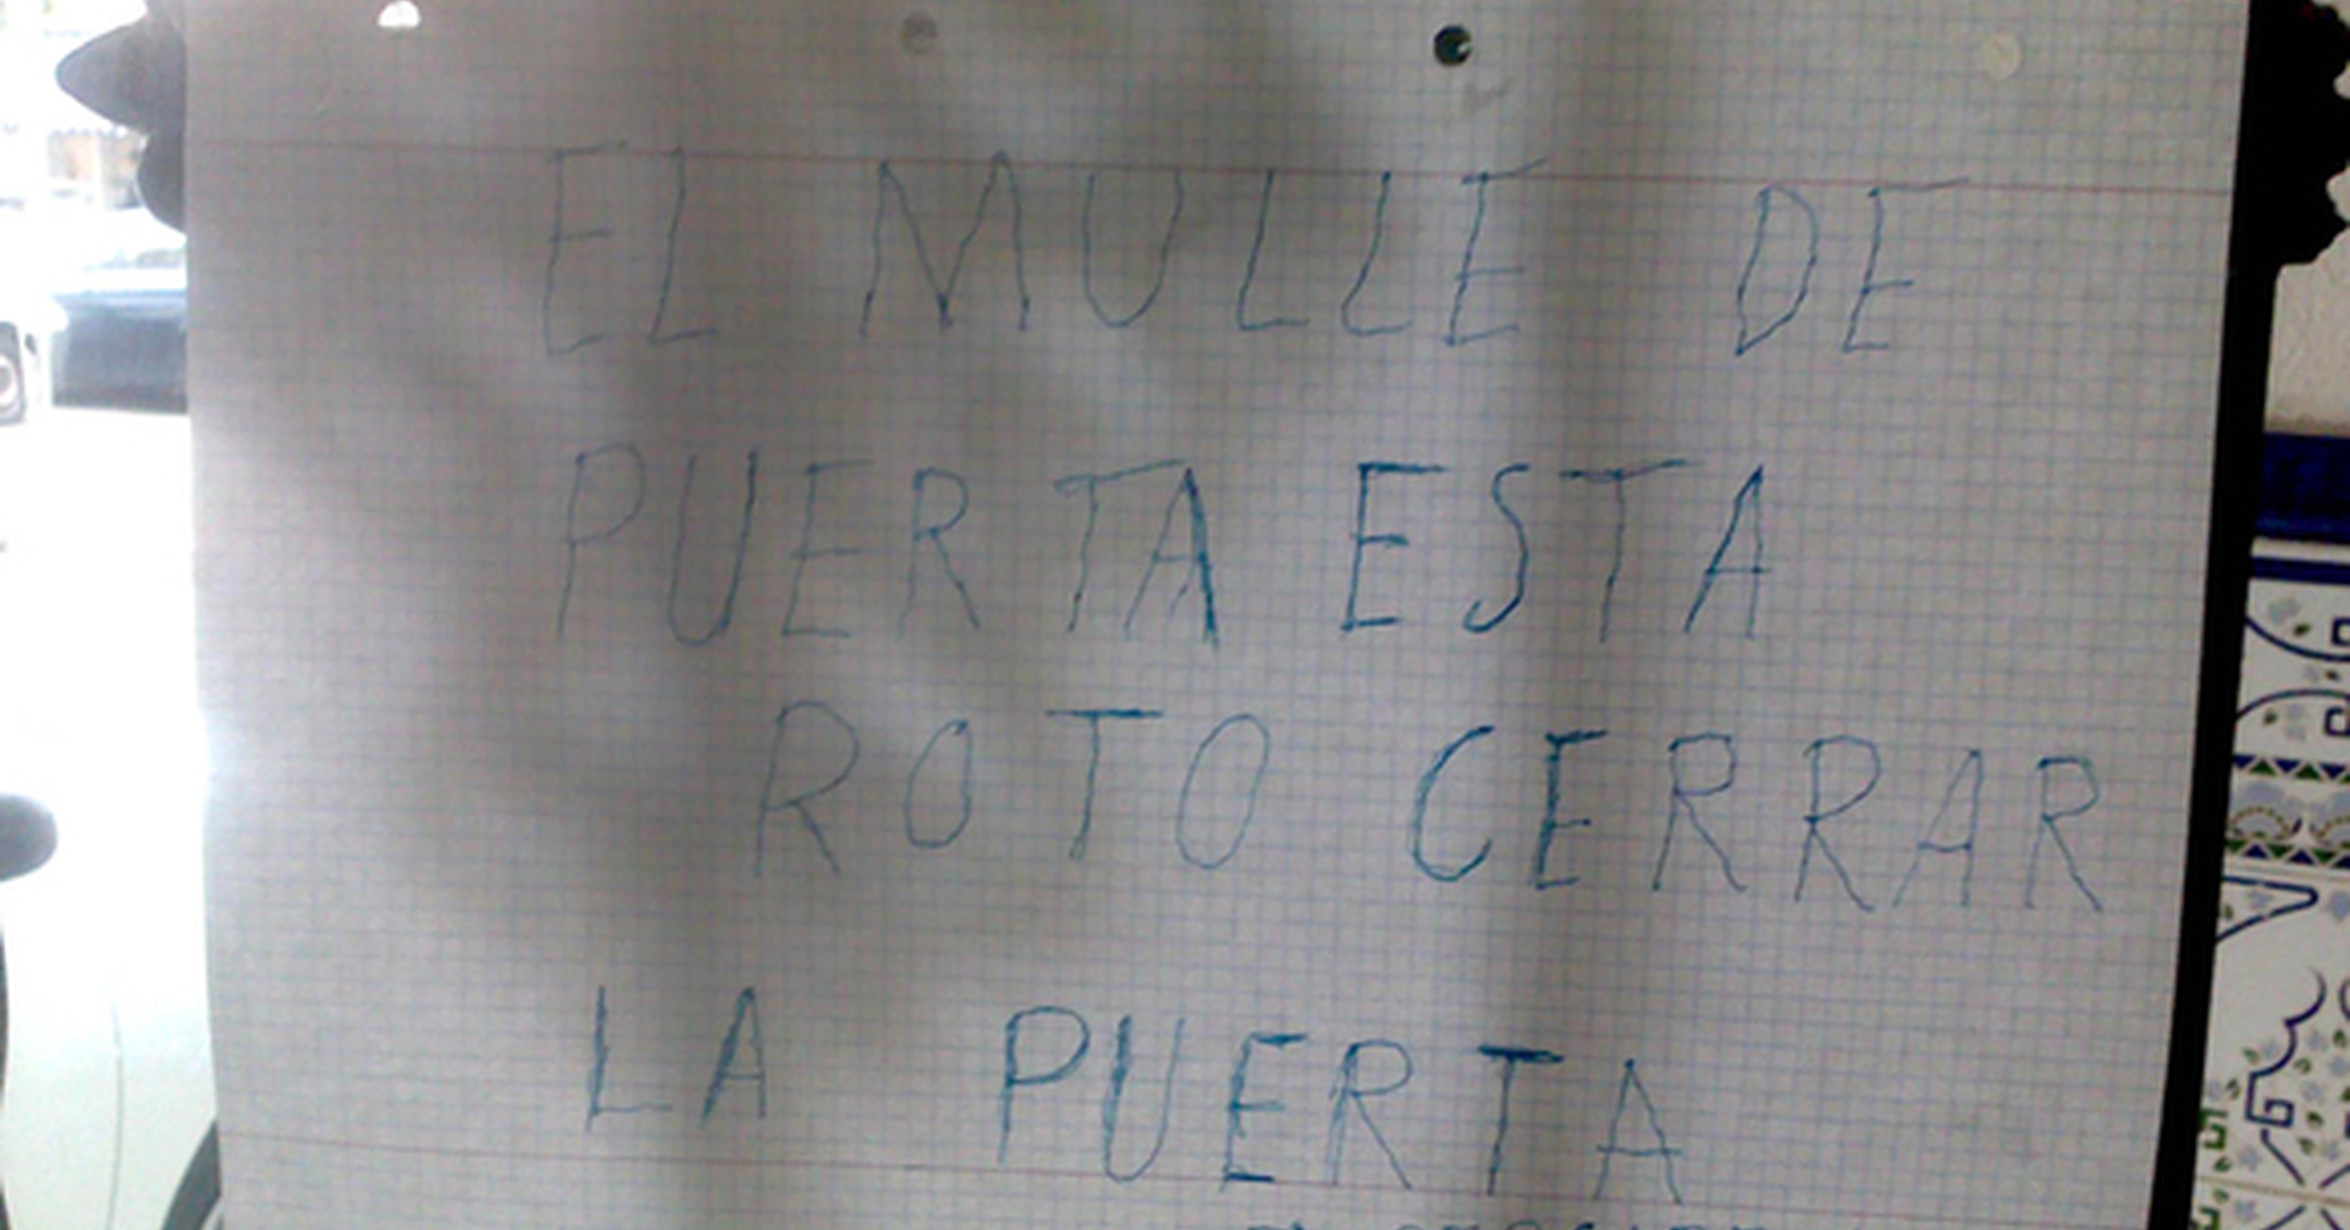 EL MULLE DE
PUERTA ESTA
ROTO CERRAR
LA PUERTA